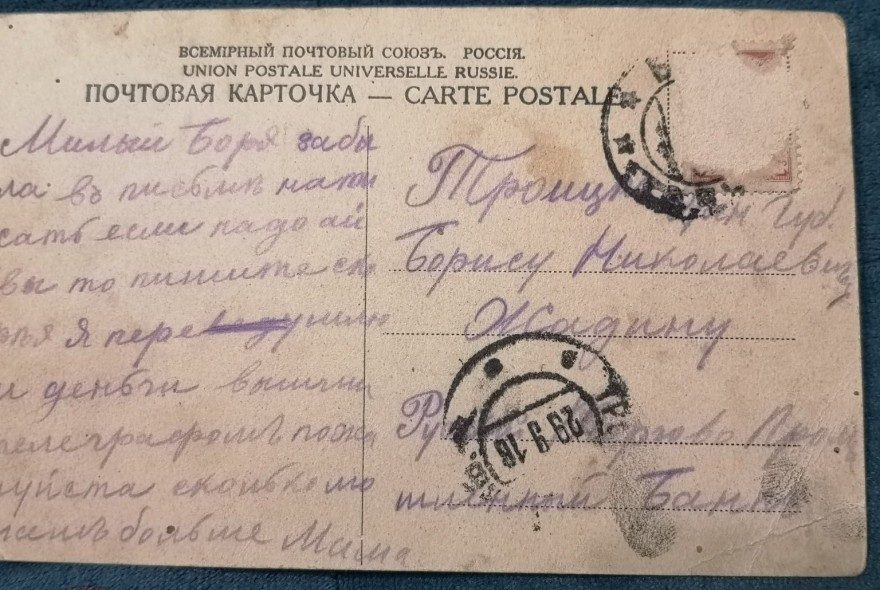 ВСЕМІРНЫЙ ПОЧТОВЫЙ СОЮЗЪ. РОССІЯ.
UNION POSTALE UNIVERSELLE RUSSIE.
ПОЧТОВАЯ КАРТОЧКА — CARTE POSTALE
Милый Боря забы
ла въ письмѣ напи
сать если надо ай
вы то пишите ско
я пере шлю
и деньги вышли
телеграфомъ пожа
луйста сколько мо
жешь больше Мама
Троицк Орен Губ.
Борису Николаевичу
Жадину
Торгово Пром
шленный Банкъ
29 9 16